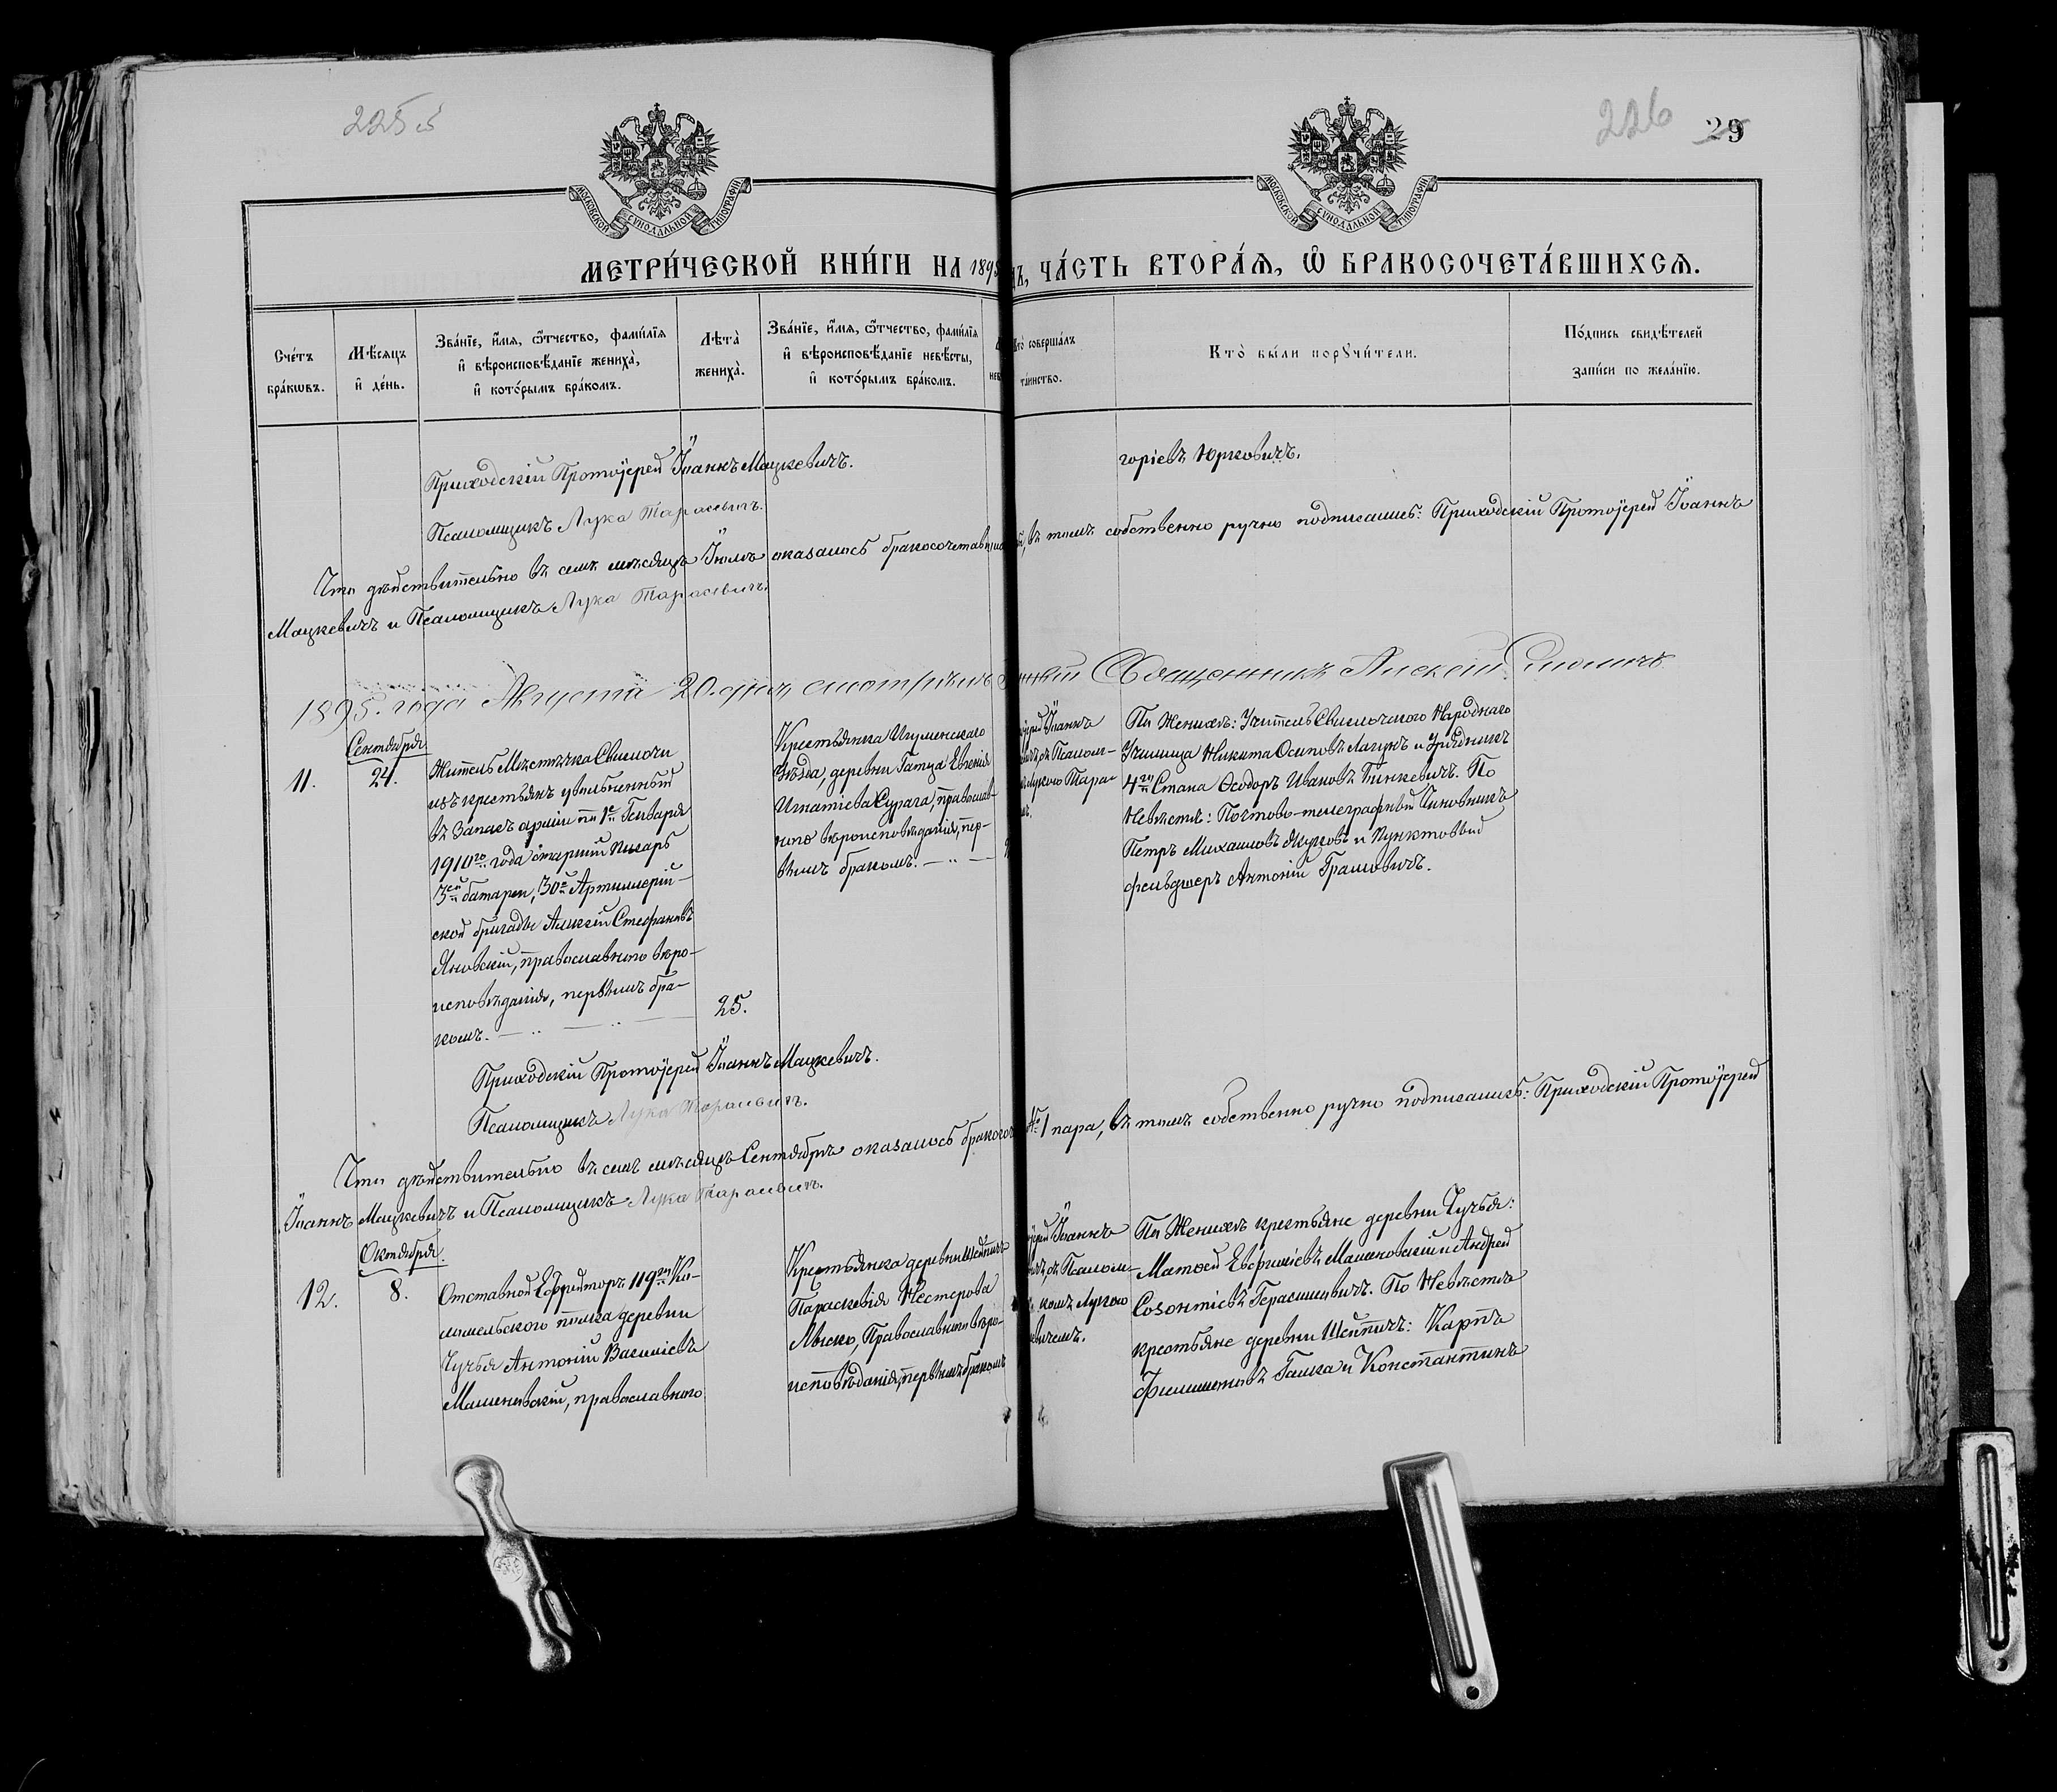 225 об
226
29
МОСКОВСКОЙ СУНОДАЛЬНОЙ ТИПОГРАФІИ
МОСКОВСКОЙ СУНОДАЛЬНОЙ ТИПОГРАФІИ
МЕТРИ́ЧЕСКОЙ КНИ́ГИ НА 1895
ДЪ, ЧА́СТЬ ВТОРА́Ѧ, Ѿ БРАКОСОЧЕТА́ВШИХСѦ.
Сче́тъ бра́кѡвъ.
Мѣ́сѧцъ и҆ де́нь.
Зва́нїе, и҆́мѧ, ѻ҆́тчество, фами́лїѧ и҆ вѣроисповѣ́данїе жениха̀, и҆ кото́рымъ бра́комъ.
Лѣта̀ жениха̀.
Зва́нїе, и҆́мѧ, ѻ҆́тчество, фами́лїѧ и҆ вѣроисповѣ́данїе невѣ́сты, и҆ кото́рымъ бра́комъ.
Кто̀ соверша́лъ та́инство.
Кто̀ бы́ли порꙋчи́тели.
По́дпись свидѣ́телей за́писи по жела́нїю.
Приходскій Протоіерей Іоаннъ Мацкевичъ.
Псаломщикъ Лука Тарасевичъ.
горіевъ Юрковичъ.
Что дѣйствительно въ семъ мѣсяцѣ Іюлѣ оказалось бракосочетавш
, въ томъ собственно ручно подписались: Приходскій Протоіерей Іоаннъ
Мацкевичъ и Псаломщикъ Лука Тарасевичъ.
1895. года Августа 20. дня смотрѣлъ
Священникъ Алексій
Сентября
11.
24.
Житель Мѣстечка Свислочи
изъ крестьянъ уволенный
въ Запасъ арміи по 1е Генваря
1910го года старшій писарь
3ей батареи, 30й Артиллерій-
ской бригады Алексій Стефановъ
Яновскій, православного вѣро-
исповѣданія, первымъ бра-
комъ.
25.
Крестьянка Игуменскаго
Уѣзда, деревни Гатца Евгенія
Игнатіева Сурага, православ-
ного вѣроисповѣданія, пер-
вымъ бракомъ.
ерей Іоаннъ
съ Псалом-
Лукою Тара-
По Женихѣ: Учитель Свислочского Народнаго
Училища Никита Осиповъ Лагунъ и Урядникъ
4го Стана Ѳеодоръ Ивановъ Бинкевичъ. По
Невѣстѣ: Почтово-телеграфный Чиновникъ
Петръ Михаиловъ Жуковъ и Пунктовый
фельдшеръ Антоній Грамовичъ.
Приходскій Протоіерей Іоаннъ Мацкевичъ.
Псаломщикъ Лука Тарасевичъ.
Что дѣйствительно въ семъ мѣсяцѣ Сентябрѣ оказалось бракосоч
1 пара, въ томъ собственно ручно подписались: Приходскій Протоіерей
Іоаннъ Мацкевичъ и Псаломщикъ Лука Тарасевичъ.
Октября.
12.
8.
Отставной Ефрейторъ 119го Ко-
ломельского полка деревни
Чучья Антоній Василіевъ
Машеновскій, православного
Крестьянка деревни
Параскевія Нестерова
Лыско, Православного вѣро-
исповѣданія, первымъ бракомъ
ерей Іоаннъ
съ Псалом-
комъ Лукою
евичемъ.
По Женихѣ крестьяне деревни Чучья:
Матѳей Евфиміевъ Машновскій и Андрей
Созонтіевъ Герасимовичъ. По Невѣстѣ
крестьяне деревни Шейпичъ: Карпъ
Филимоновъ Галка и Константинъ